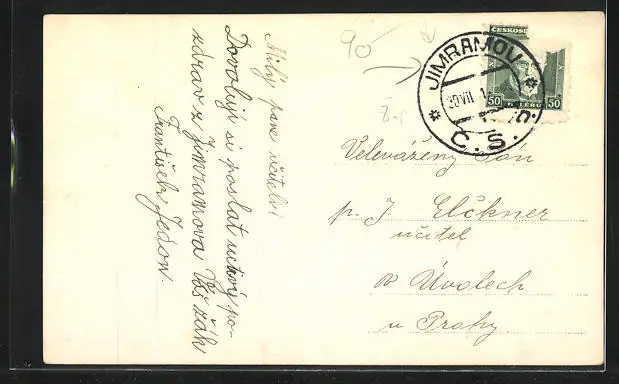 Milý pane učiteli!
Dovoluji si poslat uctivý po-
zdrav z Jimramova Váš žák
František Jedon.
90
ČESKOSL
50 HALÉŘŮ 50
* JIMRAMOV *
30 VII
Č.S.
Velevážený Pán
p. J. Elčkner
učitel
v Úvalech
u Prahy.